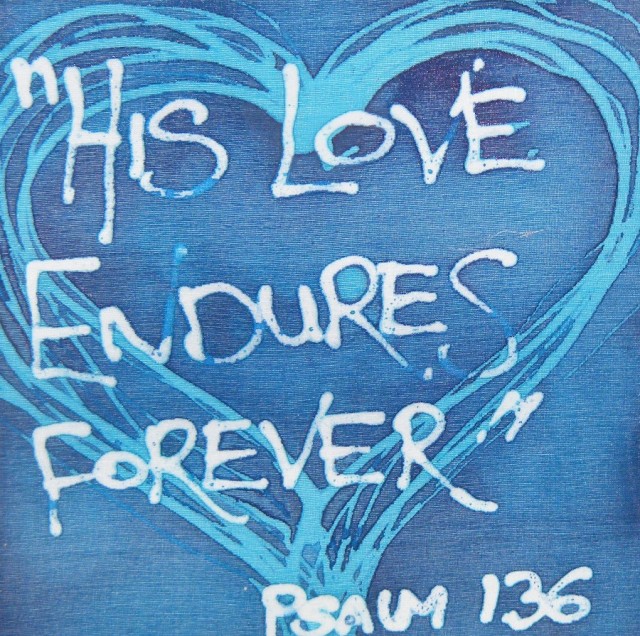 "His Love
Endures
Forever."
Psalm 136